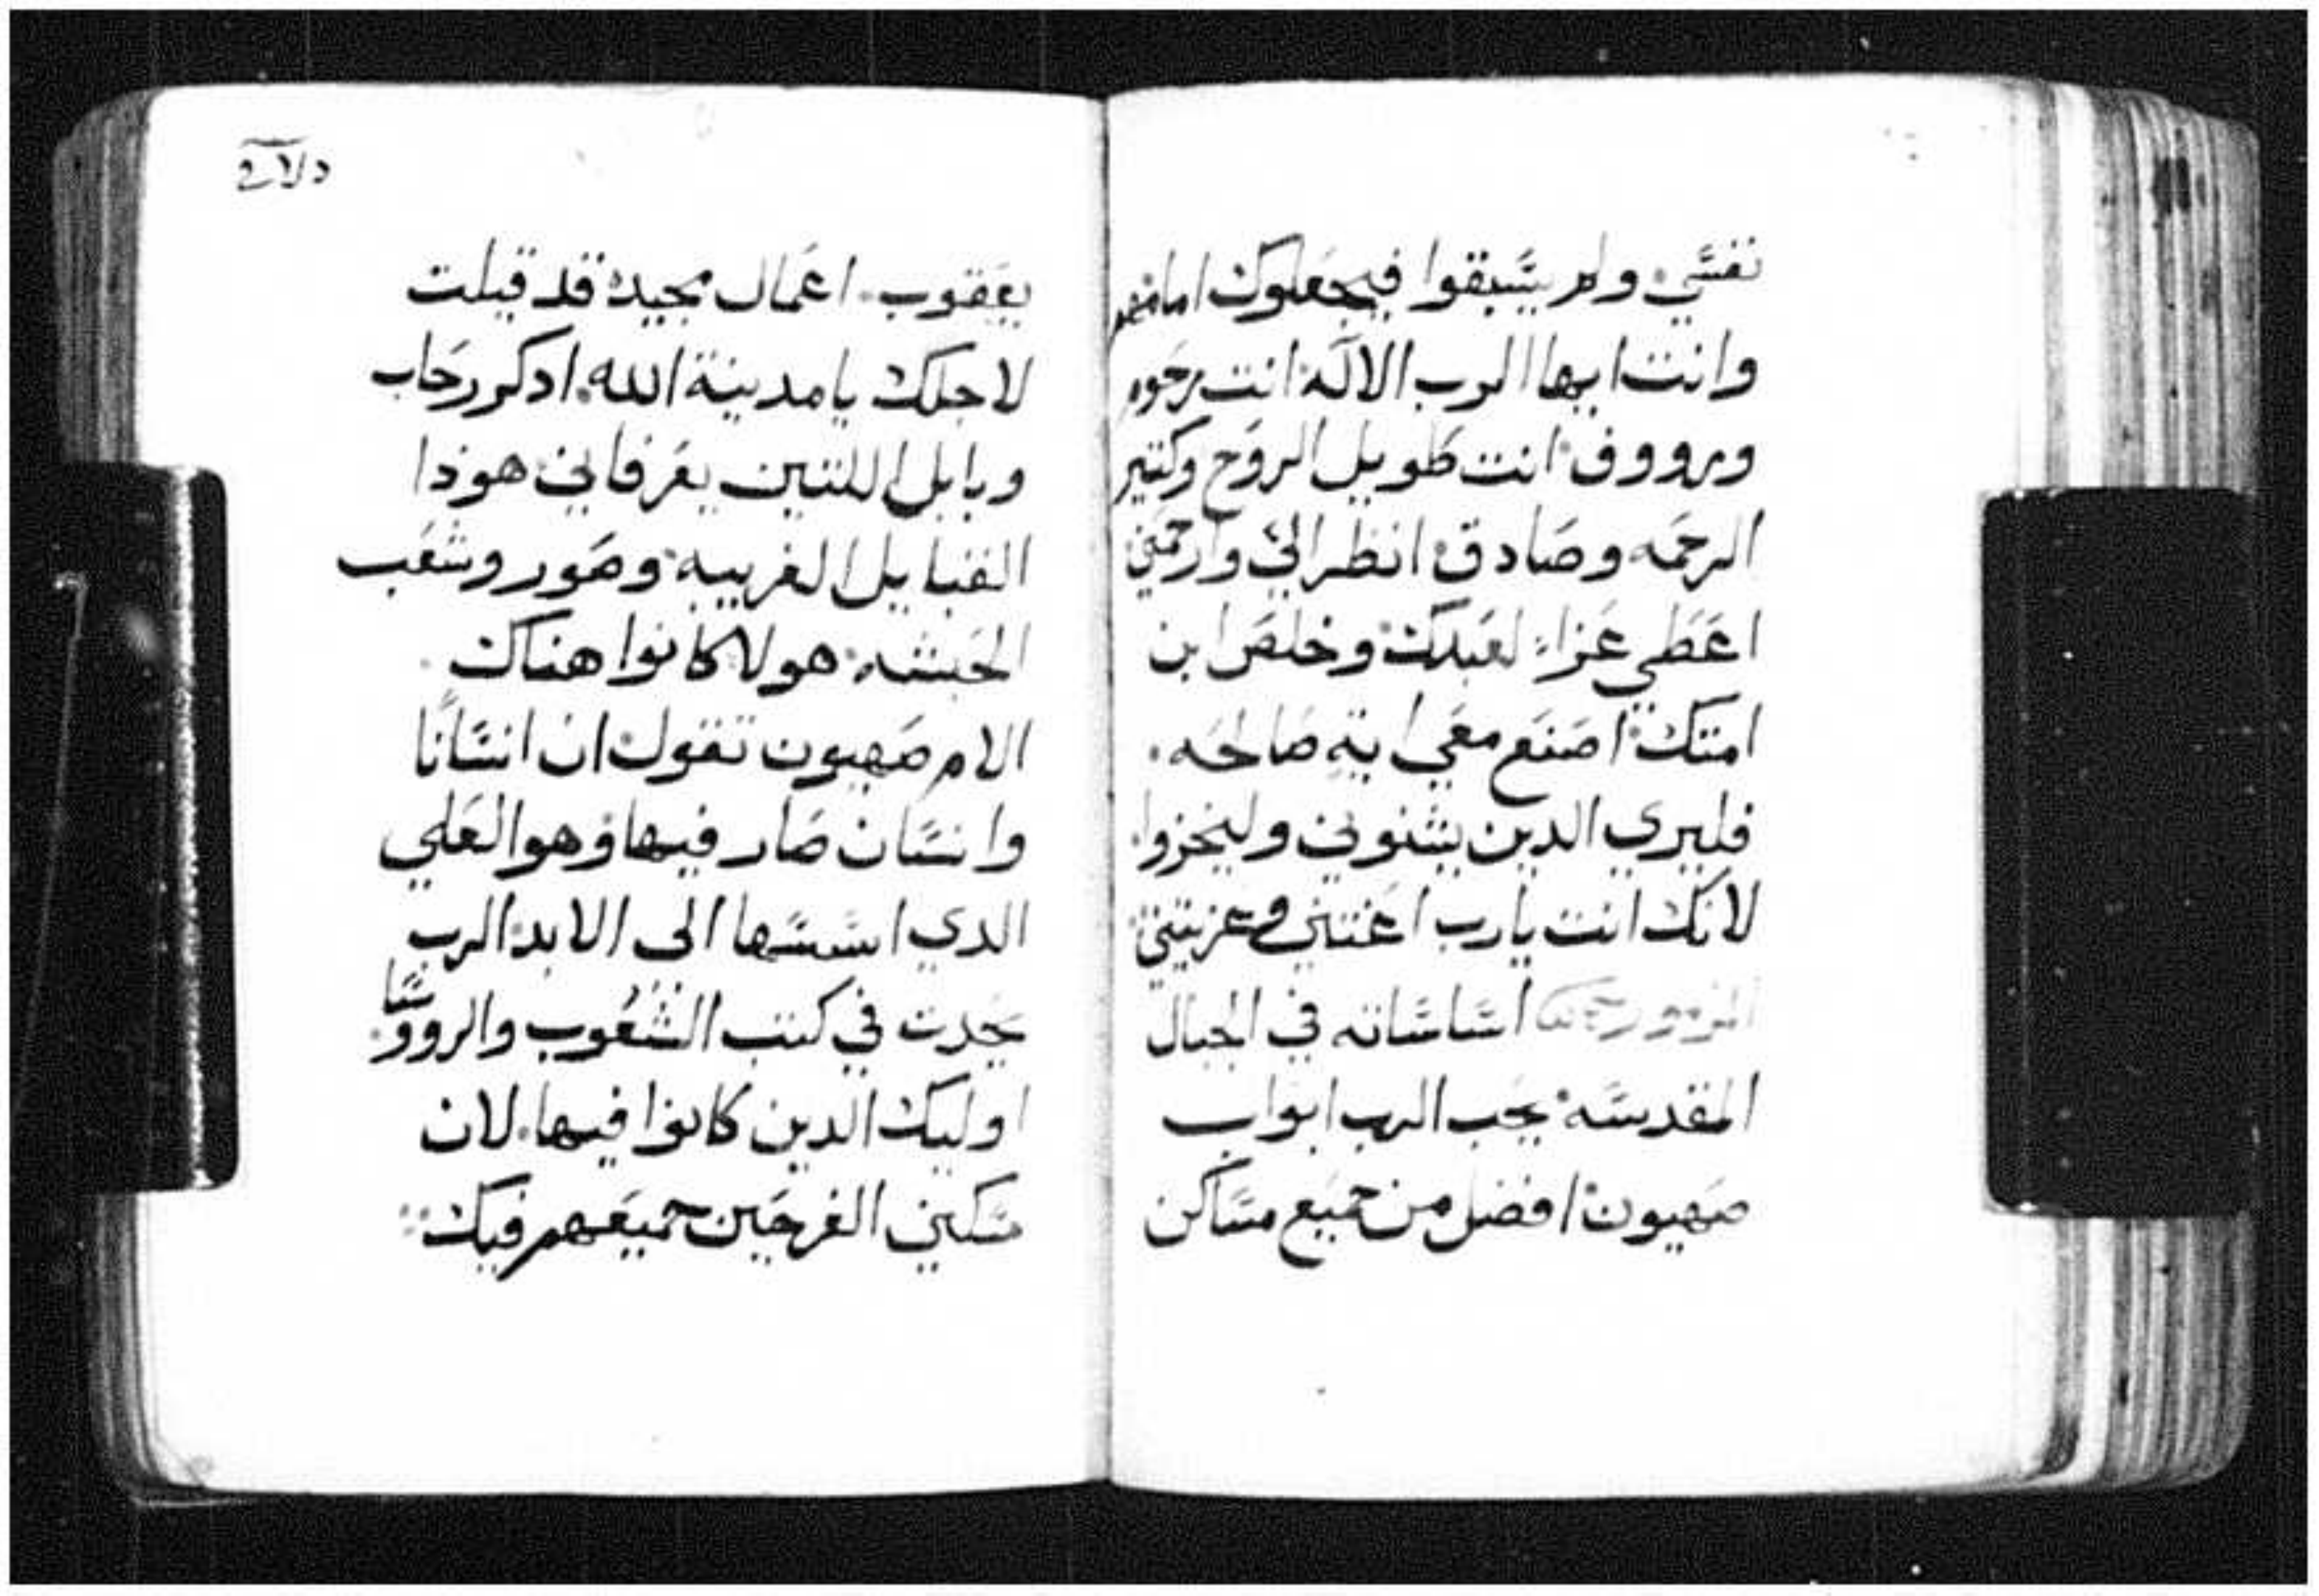 نفسي ولم يسبقوا فيجعلوك امامهم
وانت ايها الرب الاله انت رحوم
ورووف انت طويل الروح وكتير
الرحمه وصادق انظر الي وارحمني
اعطي عزاء لعبدك وخلص ابن
امتك اصنع معي اية صالحه.
فليري الدين يشنوني وليخزوا.
لانك انت يارب اعنتني وعزيتني
اساساته في الجبال
المقدسه يحب الرب ابواب
صهيون افضل من جميع مساكن
يعقوب. اعمال مجيده قد قيلت
لاجلك يا مدينة الله. ادكر رحاب
وبابل اللتين يعرفاني هوذا
القبايل الغريبه وصور وشعب
الحبشه هولا كانوا هناك.
الام صهيون تقول ان انسانا
وانسان صار فيها وهو العلي
الدي اسسها الى الابد الرب
يحدت في كتب الشعوب والرووسا
اوليك الدين كانوا فيها. لان
سكني الفرحين جميعهم فيك